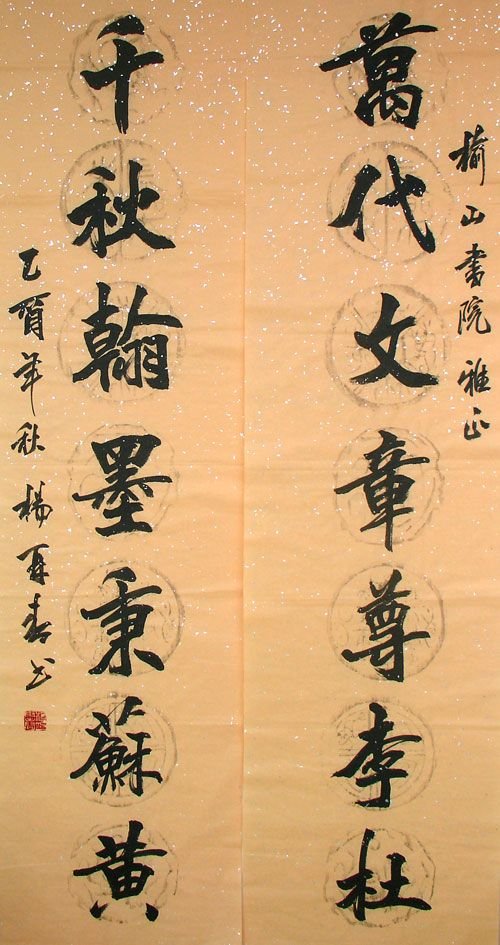 榆山書院 雅正
萬代文章尊李杜
千秋翰墨秉蘇黄
乙酉年秋 楊再春书